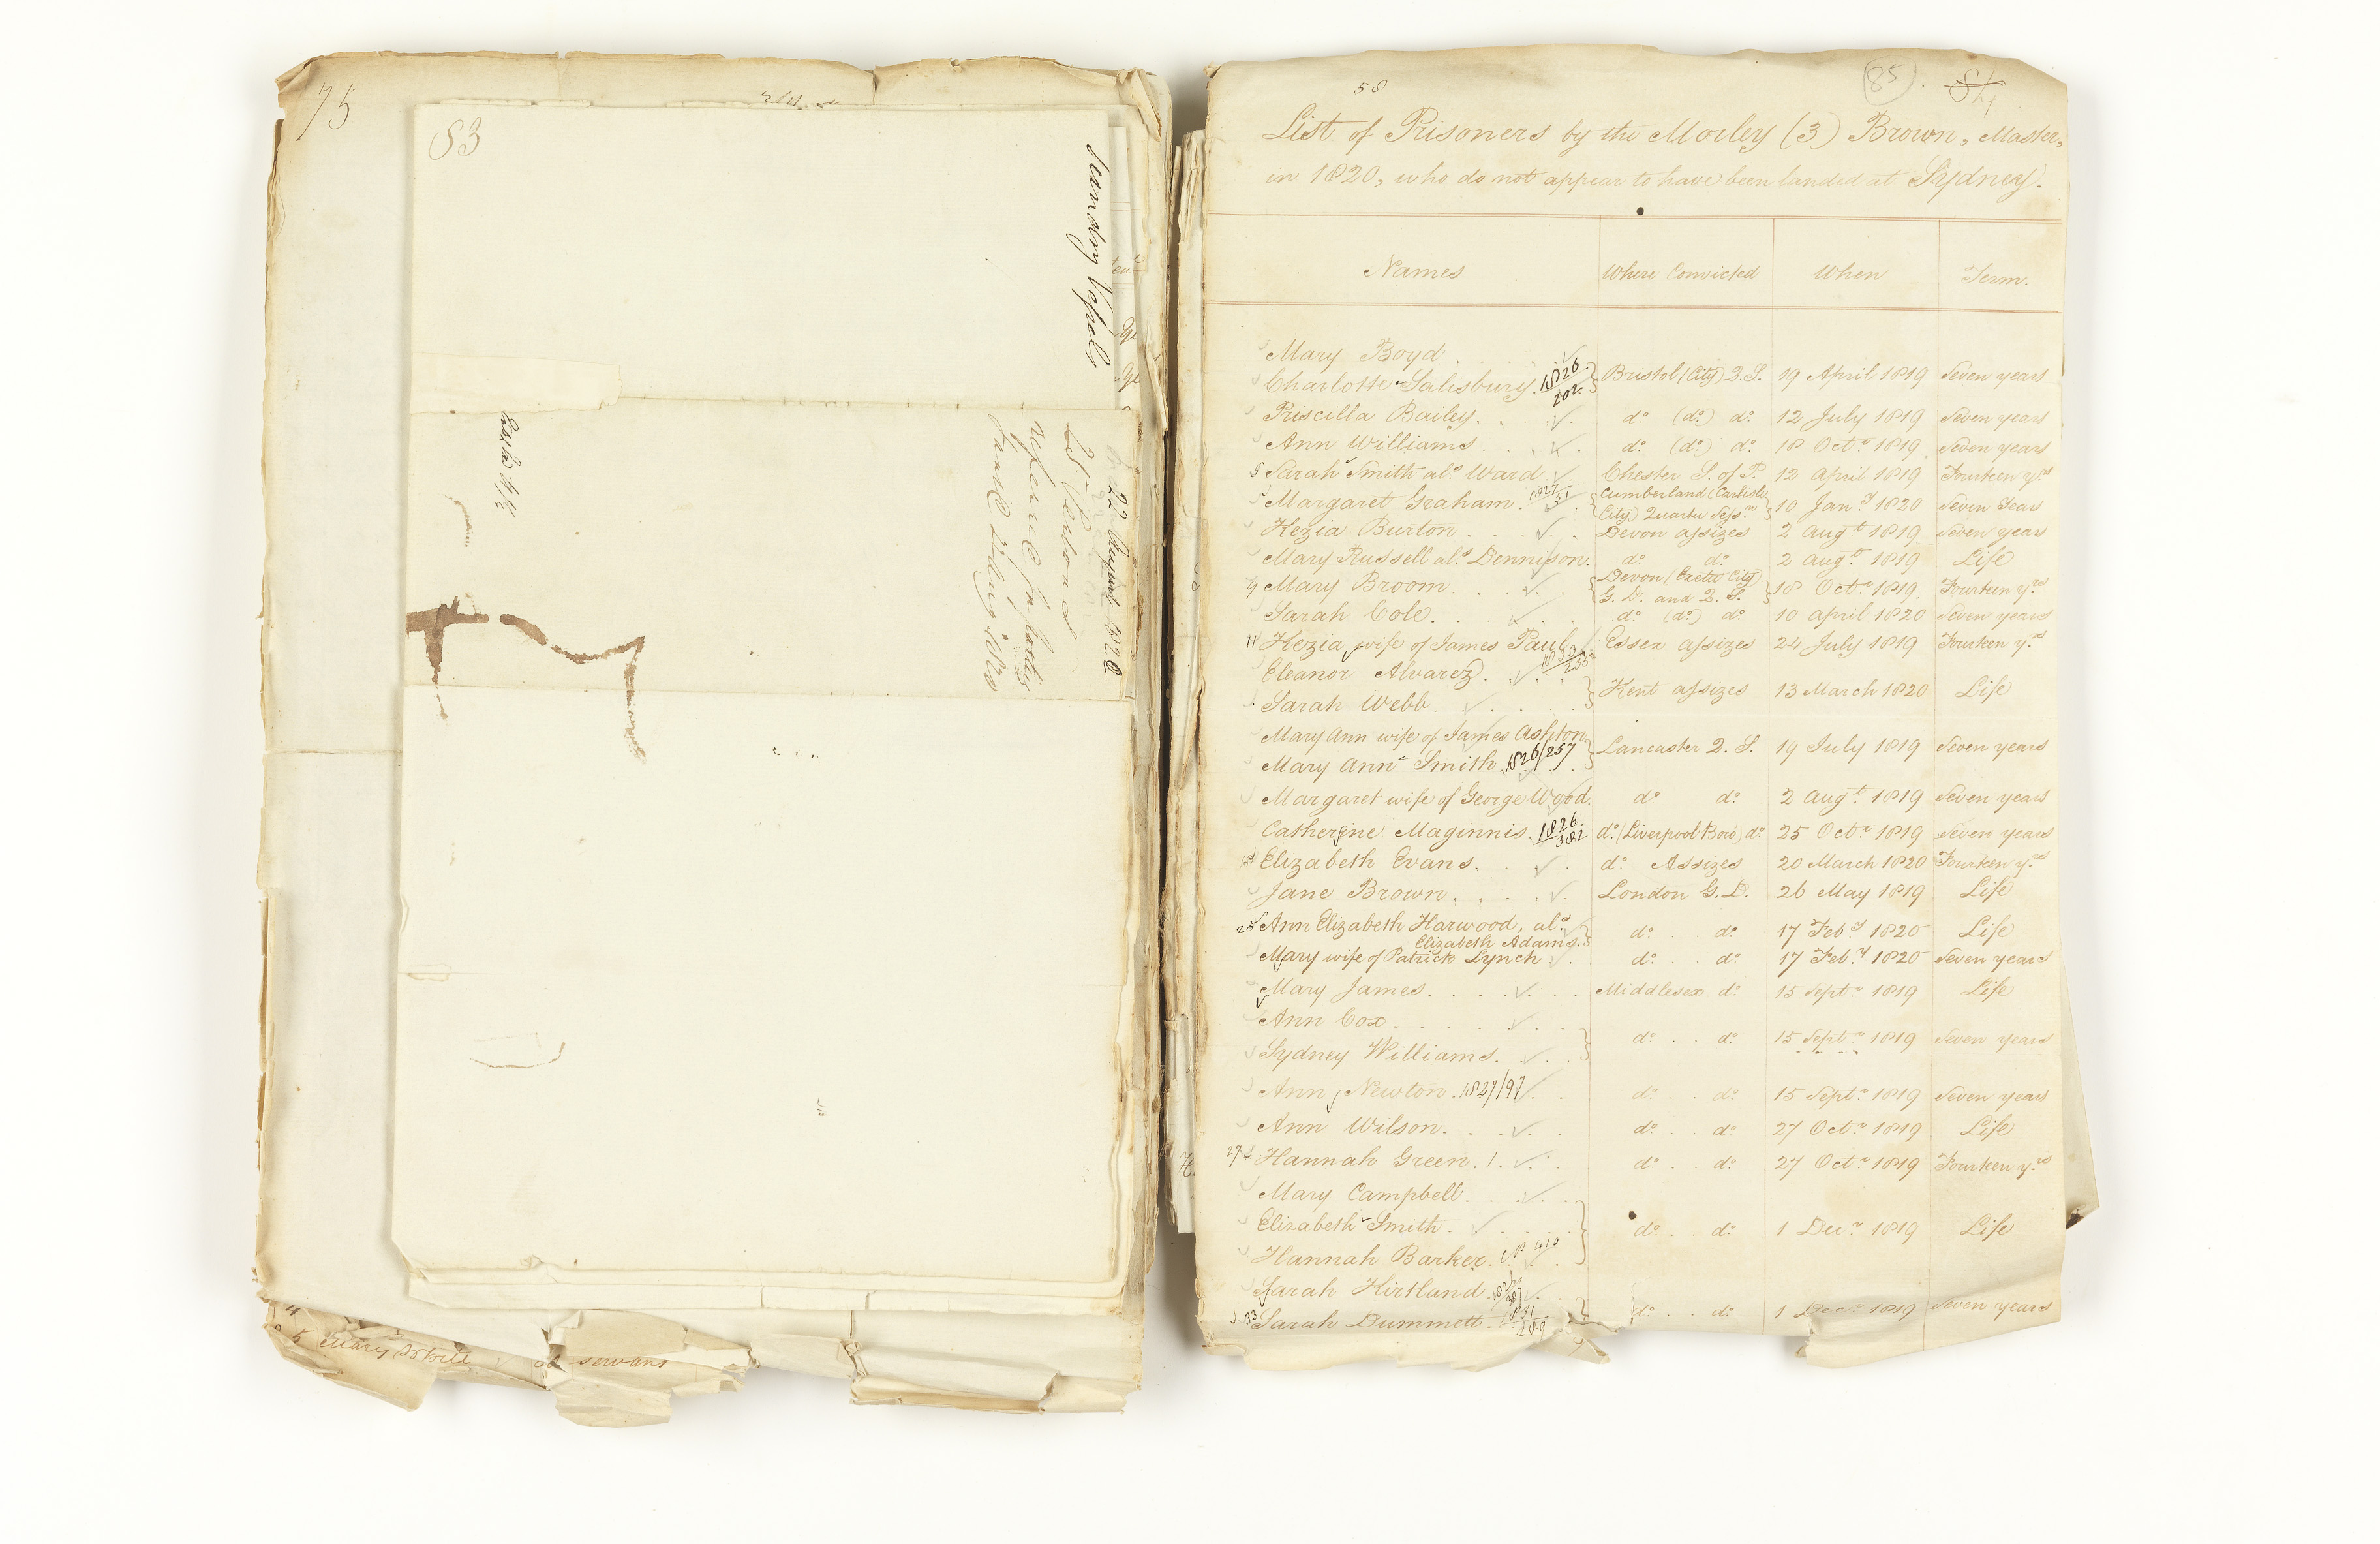 75
83
Sundry Vessels
22 August 1820
25 Persons
58
(85). 84
List of Prisoners by the Morley (3) Brown, Master,
in 1820, who do not appear to have been landed at Sydney.
Names Where Convicted When Term.
Mary Boyd
Charlotte Salisbury. 1826/202. } Bristol (City) Q.S. 19 April 1819 Seven years
Priscilla Bailey. do (do) do 12 July 1819 Seven years
Ann Williams do (do) do 18 Octr 1819 Seven years
5 Sarah Smith als Ward Chester S. of P. 12 April 1819 Fourteen yrs
Margaret Graham. 1827/51 { Cumberland (Carlisle
City) Quarter Sessn } 10 Jany 1820 Seven Years
Kezia Burton Devon Assizes 2 Augt 1819 Seven years
Mary Russell als Dennison. do do 2 Augt 1819 Life
9 Mary Broom. { Devon (Exeter City)
G. D. and Q. S. } 18 Octr 1819 Fourteen yrs
Sarah Cole. do (do) do 10 April 1820 Seven years
11 Kezia, wife of James Paul Essex Assizes 24 July 1819 Fourteen yrs
Eleanor Alvarez.
Sarah Webb } Kent Assizes 13 March 1820 Life
Mary Ann wife of James Ashton
Mary Ann Smith. 1826/257 } Lancaster Q. S. 19 July 1819 Seven years
Margaret wife of George Wood. do do 2 Augt 1819 Seven years
Catherine Maginnis. 1826/382 do (Liverpool Boro) do 25 Octr 1819 Seven years
Elizabeth Evans. do Assizes 20 March 1820 Fourteen yrs
Jane Brown London G. D. 26 May 1819 Life
20 Ann Elizabeth Harwood, als
Elizabeth Adams. } do do 17 Feby 1820 Life
Mary wife of Patrick Lynch do do 17 Feby 1820 Seven years
Mary James. Middlesex do 15 Septr 1819 Life
Ann Cox
Sydney Williams. } do do 15 Septr 1819 Seven years
Ann Newton. 1827/97 do do 15 Septr 1819 Seven years
Ann Wilson. do do 27 Octr 1819 Life
27 Hannah Green. do do 27 Octr 1819 Fourteen yrs
Mary Campbell.
Elizabeth Smith.
Hannah Barker. } do do 1 Decr 1819 Life
Sarah Kirtland.
33 Sarah Dummett. 1831/289 } do do 1 Decr 1819 Seven years
5 Mary White servant